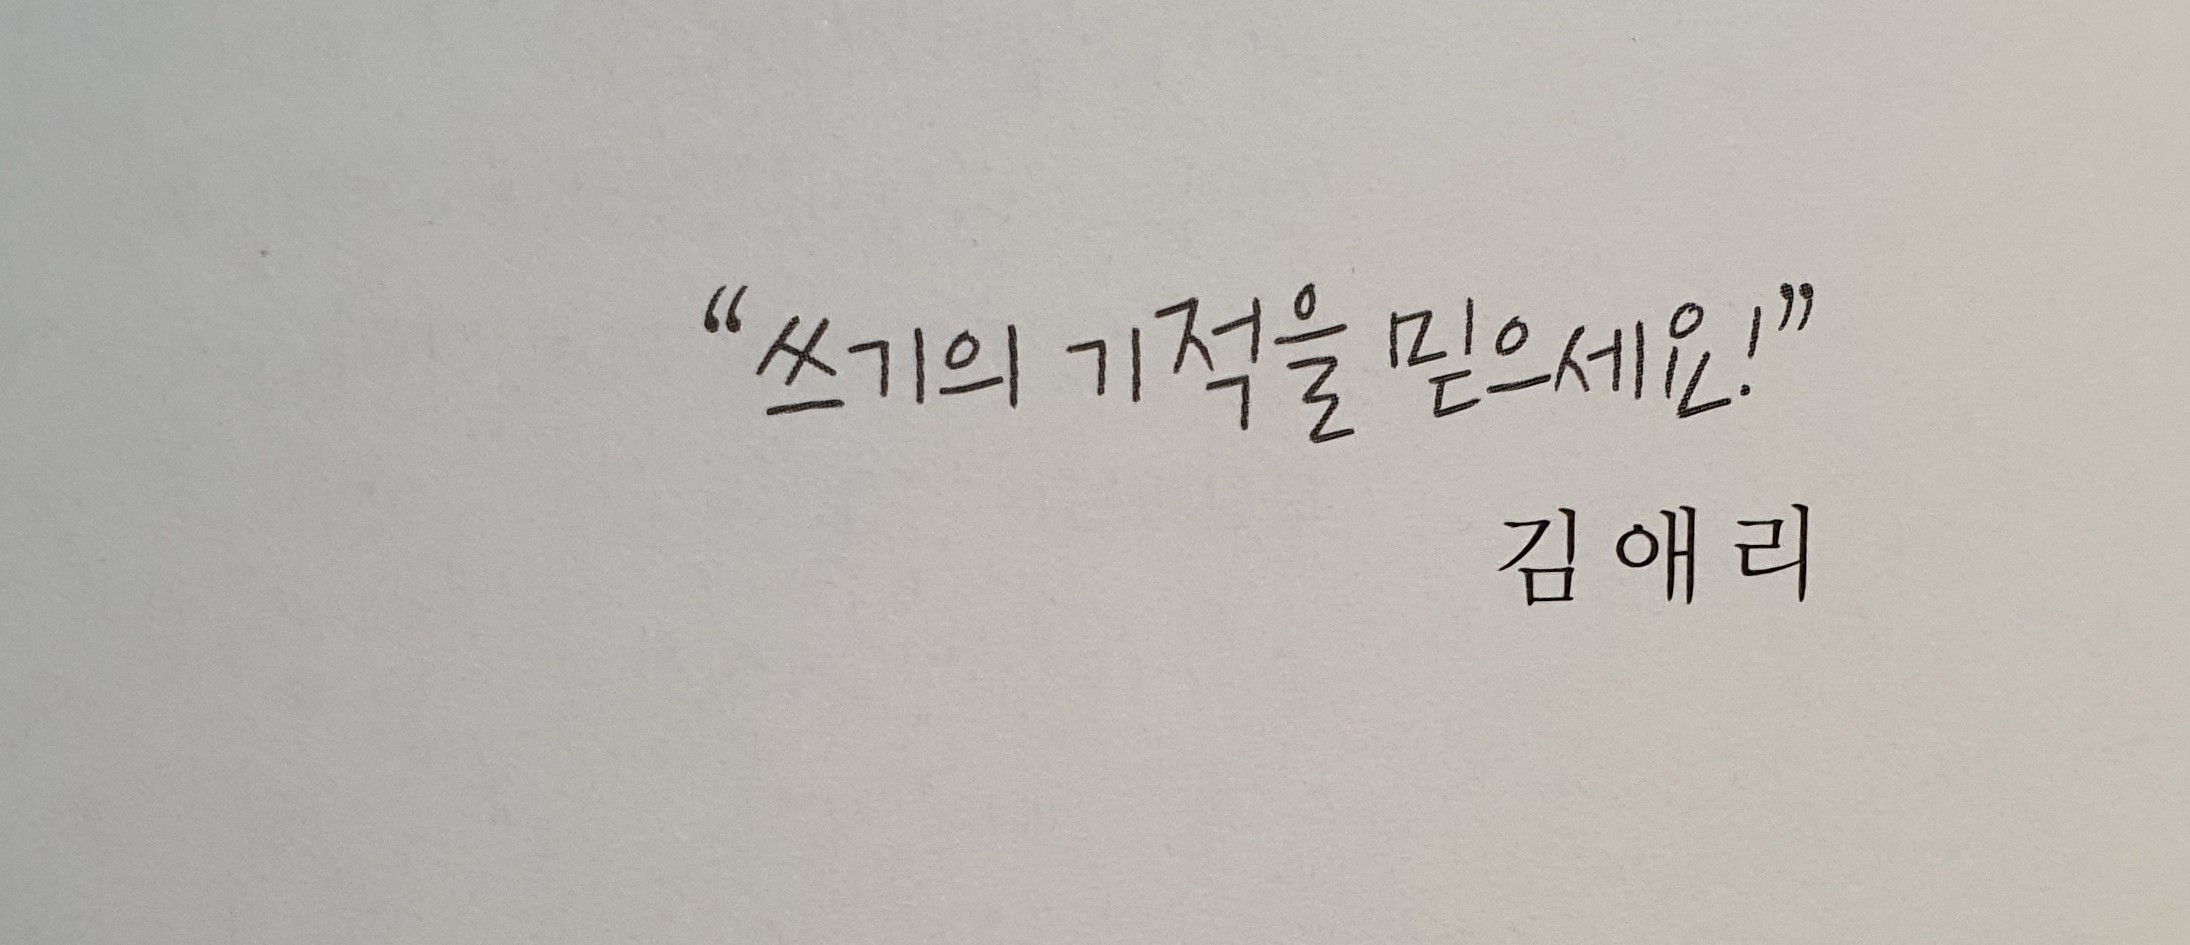 “쓰기의 기적을 믿으세요!”
김애리